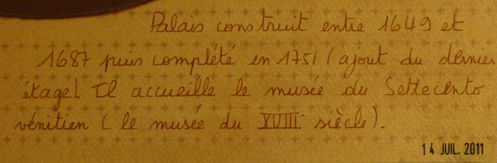 Palais construit entre 1649 et
1687 puis complété en 1751 (ajout du dernier
étage). Il accueille le musée du Settecento
vénitien (le musée du XVIII siècle).
14 JUIL. 2011